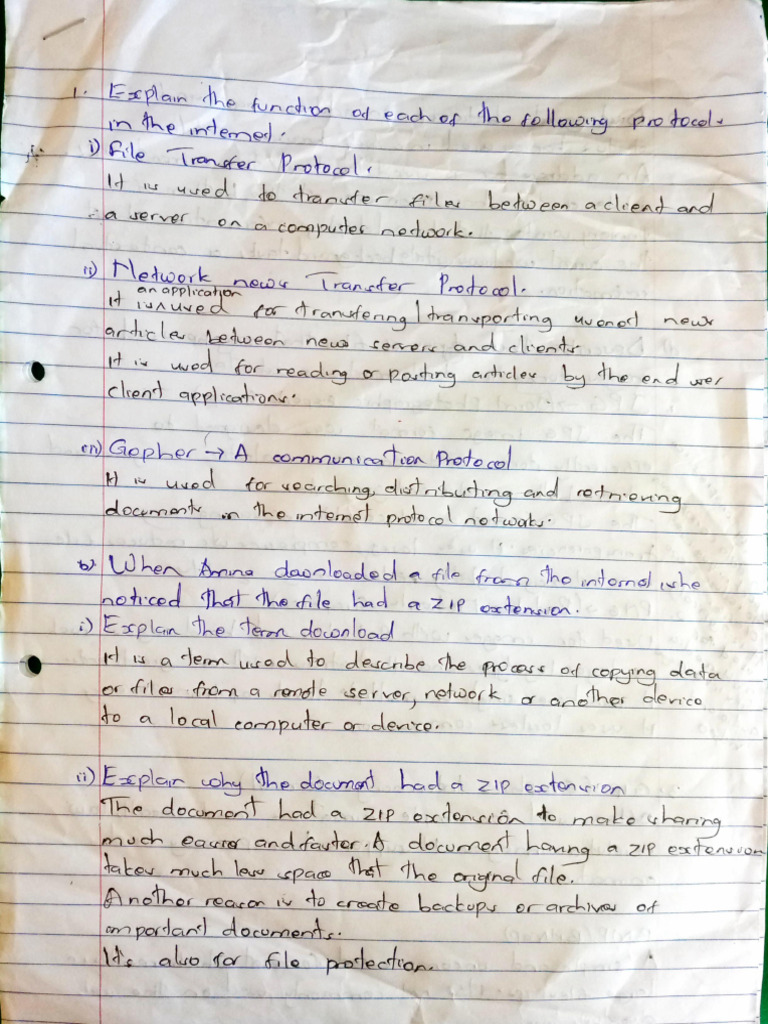 1. Explain the function of each of the following protocols
in the internet.
i) File Transfer Protocol.
It is used to transfer files between a client and
a server on a computer network.
ii) Network news Transfer Protocol.
an application
It is ^ used for transfering/transporting usenet news
articles between news servers and clients
It is used for reading or posting articles by the end user
client applications.
iii) Gopher → A communication Protocol
It is used for searching, distributing and retrieving
documents in the internet protocol networks.
b) When Amina downloaded a file from the internet she
noticed that the file had a ZIP extension.
i) Explain the term download
It is a term used to describe the process of copying data
or files from a remote server, network or another device
to a local computer or device.
ii) Explain why the document had a ZIP extension
The document had a ZIP extension to make sharing
much easier and faster. A document having a ZIP extension
takes much less space that the original file.
Another reason is to create backups or archives of
important documents.
It's also for file protection.